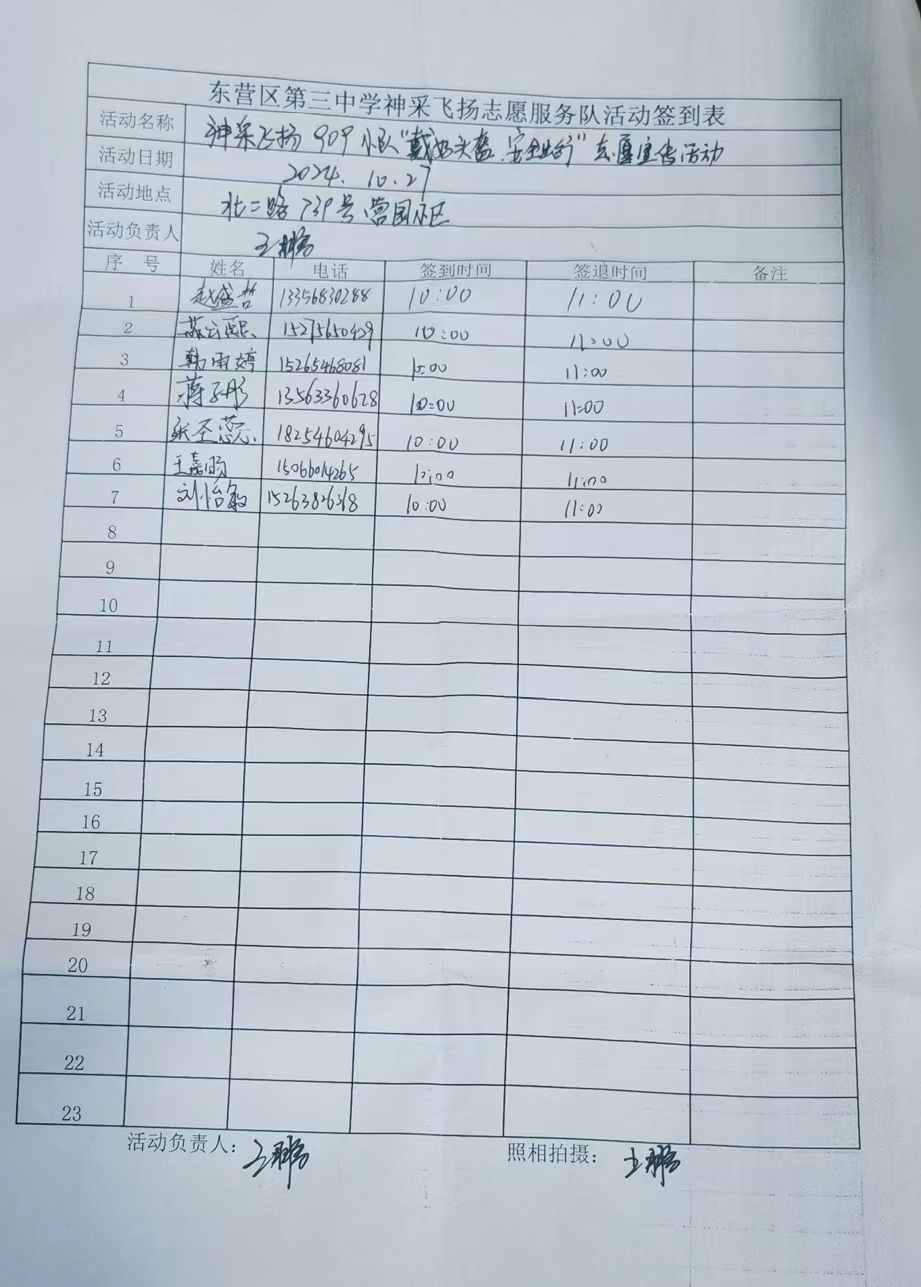 东营区第三中学神采飞扬志愿服务队活动签到表
活动名称 神采飞扬909小队"戴好头盔.安全出行"志愿宣传活动
活动日期 2024.10.27
活动地点 北二路739号营园小区
活动负责人 王鹏
序号 姓名 电话 签到时间 签退时间 备注
1 赵盛哲 13356830288 10:00 11:00
2 苏云熙 15275650429 10:00 11:00
3 韩雨婷 15265468081 10:00 11:00
4 蒋子彤 13563360628 10:00 11:00
5 张圣蕊 18254604295 10:00 11:00
6 王嘉旸 15066014265 10:00 11:00
7 刘怡敏 15263826318 10:00 11:00
8
9
10
11
12
13
14
15
16
17
18
19
20
21
22
23
活动负责人：王鹏 照相拍摄：王鹏